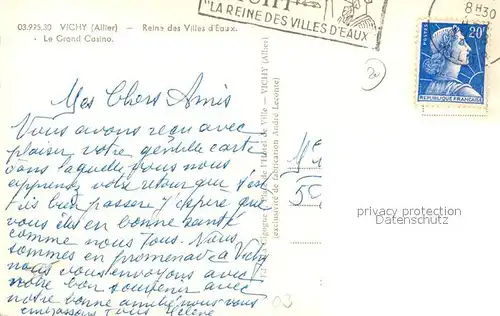 03.975.30 VICHY (Allier) - Reine des Villes d'Eaux.
• Le Grand Casino.
"LA REINE DES VILLES D'EAUX
8H30
POSTES
20F
REPUBLIQUE FRANÇAISE
de l'Hôtel de Ville — VICHY (Allier)
(exclusivité de fabrication André Leconte)
Mes Chers Amis
Nous avons reçu avec
plaisir votre gentille carte
dans laquelle vous nous
apprenez votre retour que s'est
très bien passer J'espère que
vous êtes en bonne santé
comme nous tous. Nous
sommes en promenade à Vichy
nous vous envoyons avec
notre bon souvenir avec
notre bonne amitié nous vous
embrassons Tous Hélène
privacy protection
oldthing.de
03